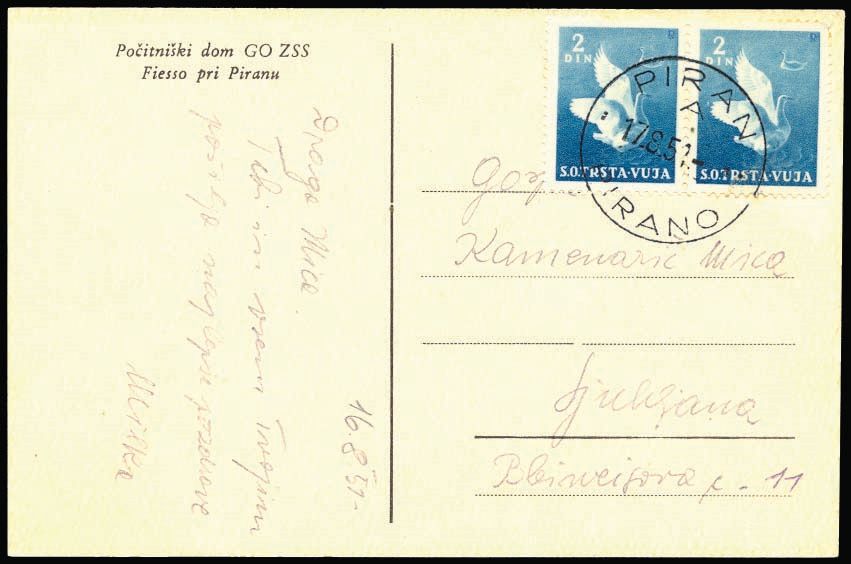 Počitniški dom GO ZSS
Fiesso pri Piranu
Draga Mica.
Tebi in vsem Tvojim
pošilja najlepše pozdrave
Milka
16.8.51-
2
DIN
S.O.TRSTA-VUJA
2
DIN
S.O.TRSTA-VUJA
PIRAN
A
17.8.51.-
PIRANO
Kamenarič Mica
Ljubljana
Bleiweisova c. 11